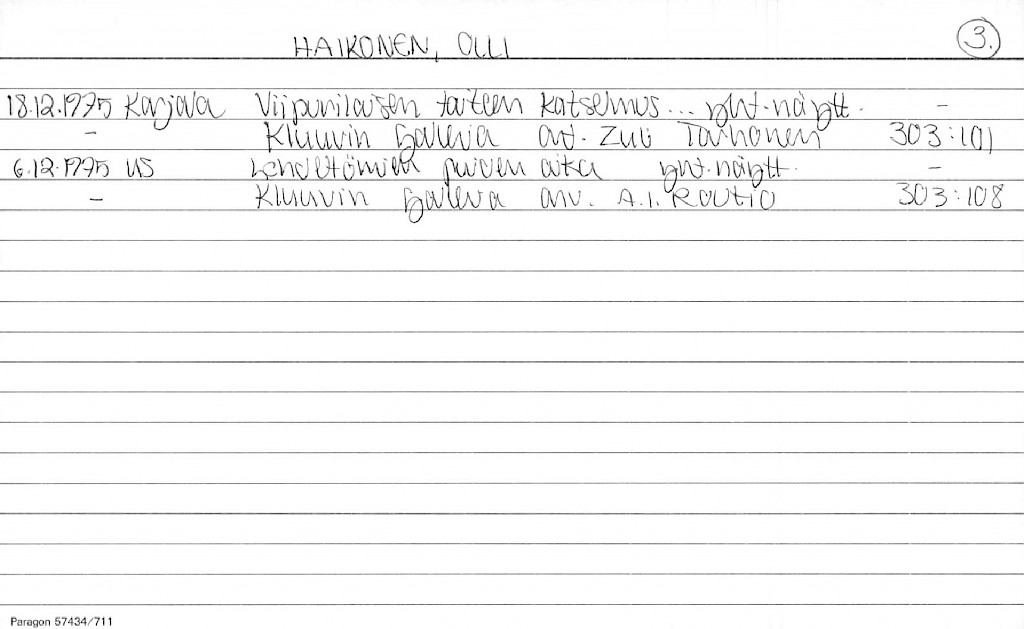 HAIKONEN, OLLI 3.
18.12.1975 Karjala Viipurilaisen taiteen katselmus... yht.näytt. -
- Kluuvin Galleria arv. Zuli Tarhonen 303:101
6.12.1975 US Lehdettömien puiden aika yht.näytt. -
- Kluuvin Galleria arv. A.I. Routio 303:108
Paragon 57434/711